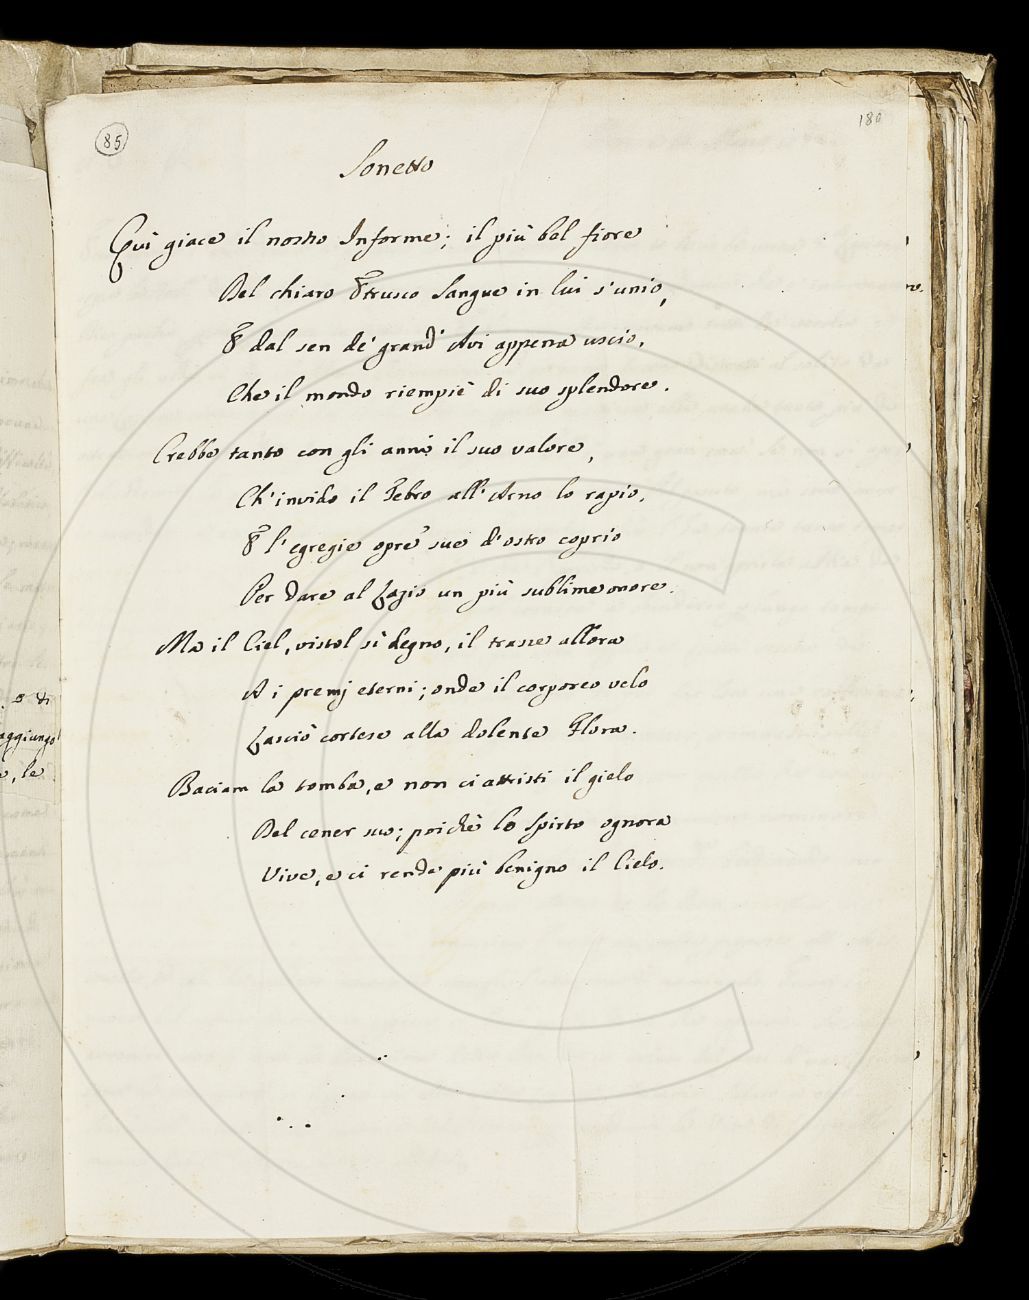 85
180
Sonetto
Qui giace il nostro Informe; il più bel fiore
Del chiaro Etrusco Sangue in lui s'unio,
E dal sen de' grand' Avi appena uscio,
Che il mondo riempiè di suo splendore.
Crebbe tanto con gli anni il suo valore,
Ch'invido il Tebro all'Arno lo rapio,
E l'egregie opre sue d'ostro coprio
Per dare al Lazio un più sublime onore.
Ma il Ciel, vistol sì degno, il trasse allora
A i premj eterni; onde il corporeo velo
Lasciò cortese alla dolente Flora.
Baciam la tomba, e non ci attristi il gielo
Del cener suo; poichè lo Spirto ognora
Vive, e ci rende più benigno il Cielo.
aggiungo
e, le